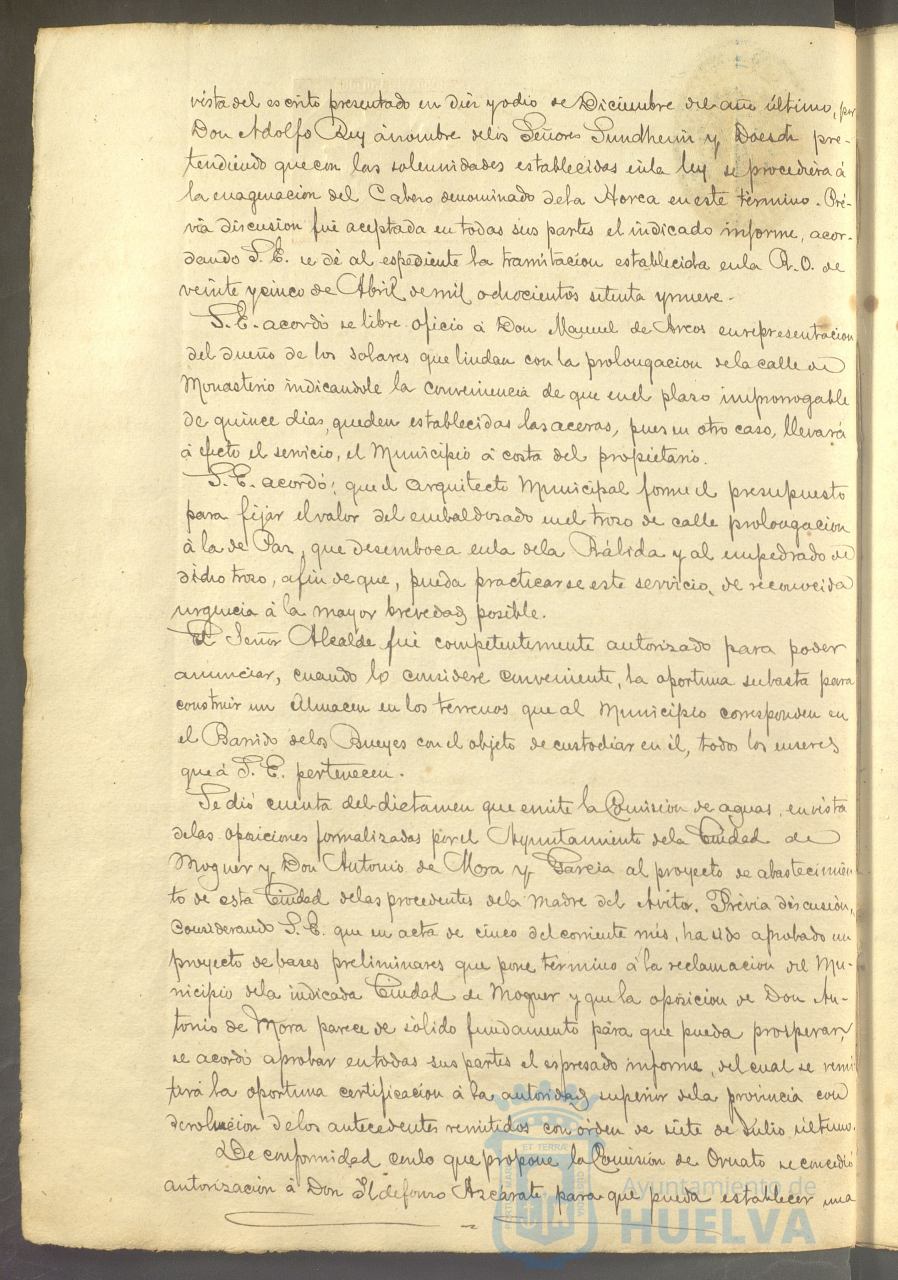 vista del escrito presentado en diez y ocho de Diciembre del año último, por
Don Adolfo Rey á nombre de los Señores Sundheim y Doesch pre-
tendiendo que con las solemnidades establecidas en la ley se procediera á
la enagenacion del Cabezo denominado de la Horca en este término. Pré-
via discusion fué aceptada en todas sus partes el indicado informe, acor-
dando S.E. se dé al espediente la tramitacion establecida en la R.O. de
veinte y cinco de Abril de mil ochocientos setenta y nueve.
S.E. acordó se libre oficio á Don Manuel de Arcos en representacion
del dueño de los solares que lindan con la prolongacion de la calle de
Monasterio indicandole la conveniencia de que en el plazo improrrogable
de quince dias, queden establecidas las aceras, pues en otro caso, llevará
á efecto el servicio, el Municipio á costa del propietario.
S.E. acordó: que el Arquitecto Municipal forme el presupuesto
para fijar el valor del embaldosado en el trozo de calle prolongacion
á la de Paz, que desemboca en la de la Rábida y al empedrado de
dicho trozo, a fin de que, pueda practicarse este servicio, de reconocida
urgencia á la mayor brevedad posible.
El Señor Alcalde fué competentemente autorizado para poder
anunciar, cuando lo considere conveniente, la oportuna subasta para
construir un Almacen en los terrenos que al Municipio corresponden en
el Barrido de los Bueyes con el objeto de custodiar en él, todos los enseres
que á S.E. pertenecen.
Se dió cuenta del dictamen que emite la Comision de aguas, en vista
de las oposiciones formalizadas por el Ayuntamiento de la Ciudad de
Moguer y Don Antonio de Mora y Garcia al proyecto de abastecimien
to de esta Ciudad de las procedentes de la Madre del Avitor. Prévia discusión,
Considerando S.E. que en acta de cinco del corriente mes, ha sido aprobado un
proyecto de bases preliminares que pone término á la reclamacion del Mu-
nicipio de la indicada Ciudad de Moguer y que la oposicion de Don An-
tonio de Mora parece de sólido fundamento para que pueda prosperar,
se acordó aprobar en todas sus partes el espresado informe, del cual se remi
tirá la oportuna certificacion á la autoridad superior de la provincia con
devolucion de los antecedentes remitidos con orden de siete de Julio último.
De conformidad con lo que propone la Comision de Ornato se concedió
autorizacion á Don Ildefonso Azcárate para que pueda establecer una
Ayuntamiento de
HUELVA